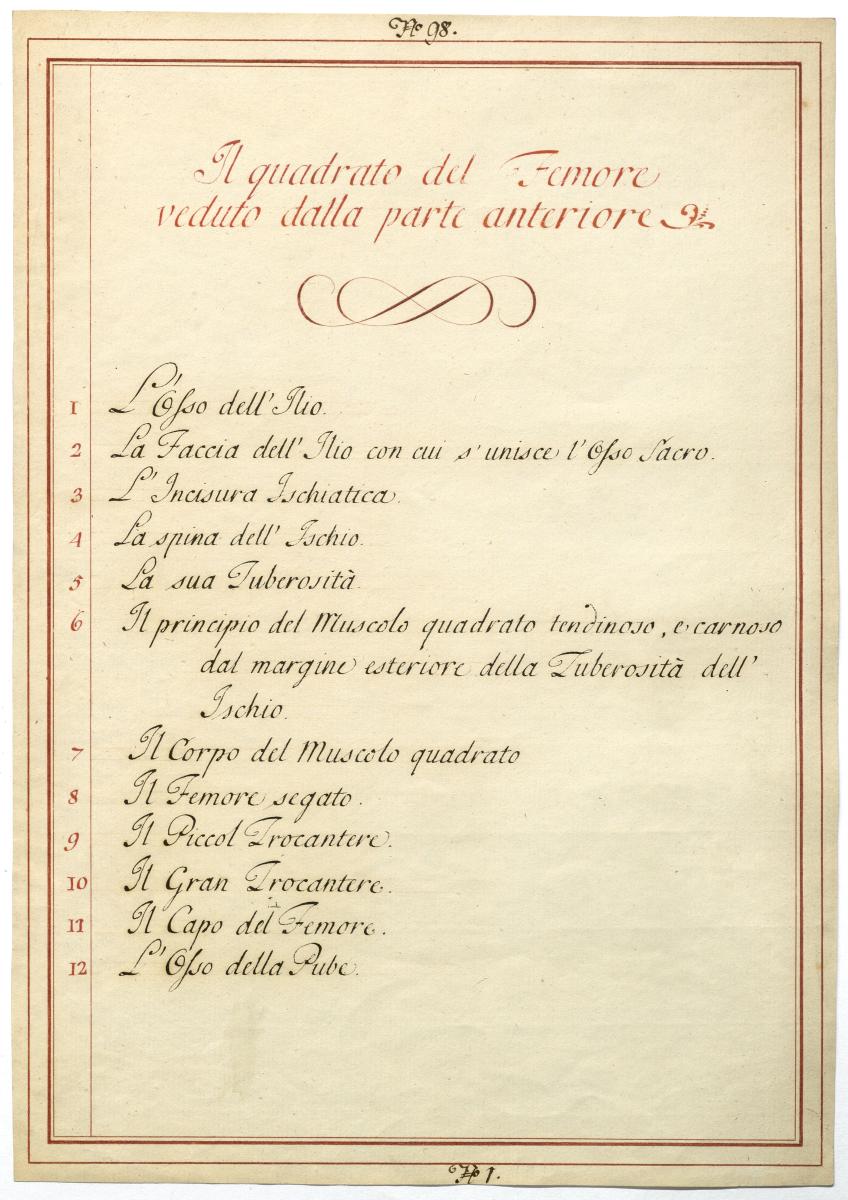 No 98.
Il quadrato del Femore
veduto dalla parte anteriore
1 L'Osso dell' Ilio.
2 La Faccia dell' Ilio con cui s' unisce l' Osso Sacro.
3 L' Incisura Ischiatica.
4 La spina dell' Ischio.
5 La sua Tuberosità.
6 Il principio del Muscolo quadrato tendinoso, e carnoso
dal margine esteriore della Tuberosità dell'
Ischio.
7 Il Corpo del Muscolo quadrato
8 Il Femore segato.
9 Il Piccol Trocantere.
10 Il Gran Trocantere.
11 Il Capo del Femore.
12 L' Osso della Pube.